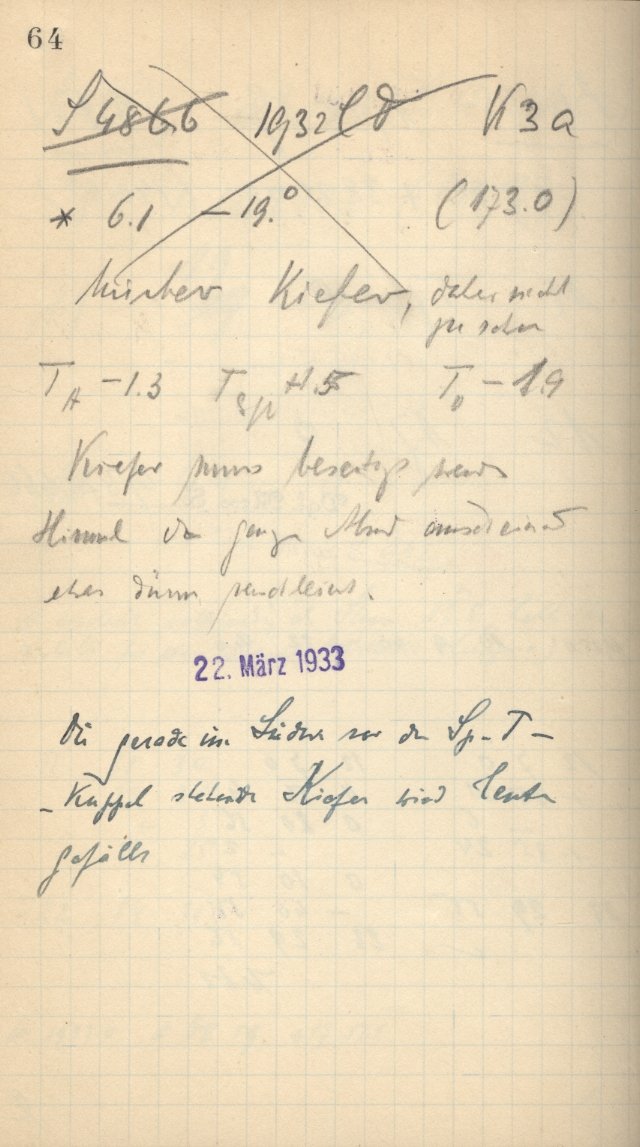 64
S 4866 1932 CD K 3 a
* 6.1 – 19.° (173.0)
hinter Kiefer, daher nicht
zu sehen
T_A – 1.3 T_Sp + 1.5 T_0 – 1.9
Kiefer muss beseitigt werden
Himmel den ganzen Abend
etwas dunstig
22. März 1933
Die gerade im Süden vor der Sp-T-
-Kuppel stehende Kiefer wird heute
gefällt